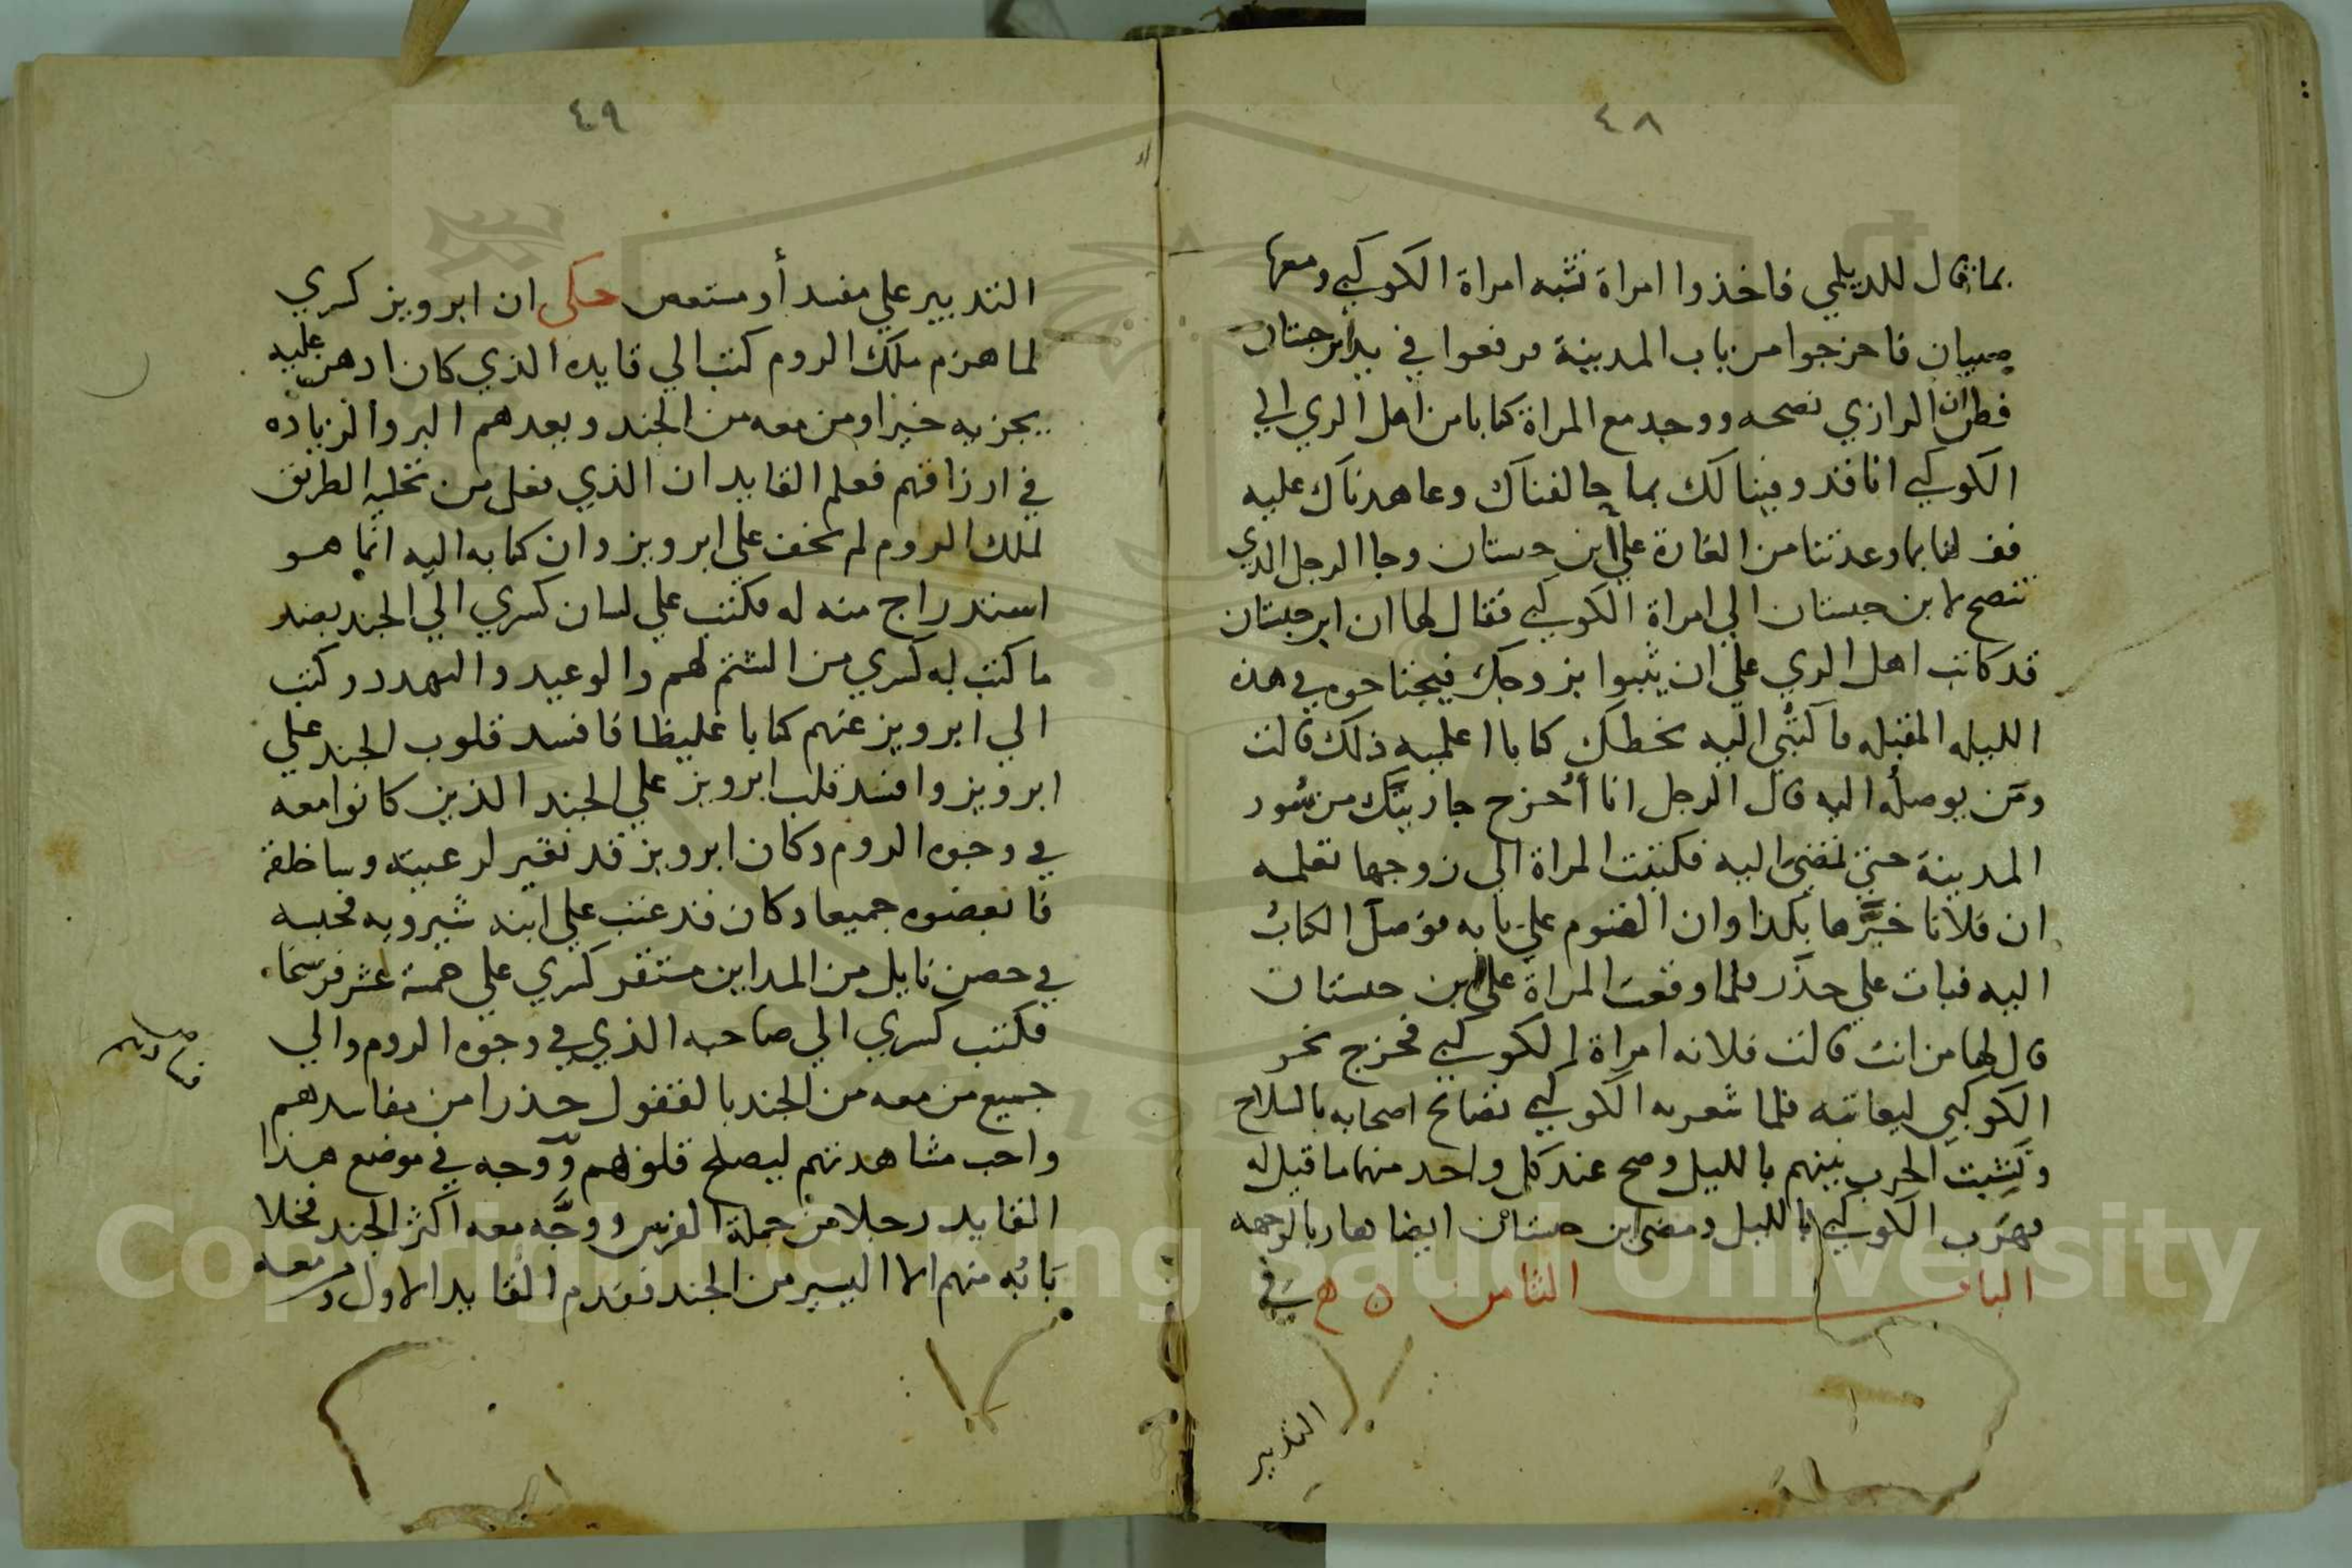 ٤٨
بما قال للديلمي فاخذوا امراة تشبه امراة الكوكبي ومعها
صبيان فاخرجوا من باب المدينة فوقعوا في يد ابن جستان
فظن ان الرازي نصحه ووجد مع المراة كتابا من اهل الري الي
الكوكبي انا قد وفينا لك بما حالفناك وعاهدناك عليه
فف لنا بما وعدتنا من الغارة علي ابن جستان وجا الرجل الذي
تنصح لابن جستان الي امراة الكوكبي فقال لها ان ابن جستان
قد كاتب اهل الري علي ان يثبوا بزوجك فيجتاحوه في هذه
الليله المقبله فاكتبي اليه بخطك كتابا اعلميه ذلك قالت
ومن يوصله اليه قال الرجل انا أُخرج جاريتك من سُور
المدينة حتي تمضي اليه فكتبت المراة الي زوجها تعلمه
ان فلانا خبَّرها بكذا وان القوم علي بابه فوصل الكتاب
اليه فبات علي حذر فلما وقعت المراة علي ابن جستان
قال لها من انت قالت فلانه امراة الكوكبي فخرج نحو
الكوكبي ليعاتبه فلما شعر به الكوكبي تصايح اصحابه بالسلاح
ونشبت الحرب بينهم بالليل وصح عند كل واحد منهما ما قيل له
فهرب الكوكبي بالليل ومضي ابن جستان ايضا هاربا لوجهه
الباب الثامن في
التدبير
٤٩
التدبير علي مفسد أو مستعص حكى ان ابرويز كسري
لما هزم ملك الروم كتب الي قايده الذي كان ادهن عليه
يجزيه خيرا ومن معه من الجند وبعدهم البر والزياده
في ارزاقهم فعلم القايد ان الذي فعل من تخليه الطريق
لملك الروم لم يخف علي ابرويز وان كتابه اليه انما هو
استدراج منه له فكتب علي لسان كسري الي الجند بضد
ما كتب له كسري من الشتم لهم والوعيد والتهدد وكتب
الي ابرويز عنهم كتابا غليظا فافسد قلوب الجند علي
ابرويز وافسد قلب ابرويز علي الجند الذين كانوا معه
في وجوه الروم وكان ابرويز قد تغير لرعيته وساخلقه
فابغضوه جميعا وكان قد عتب علي ابنه شيرويه فحبسه
في حصن نايل من المداين مستقر كسري علي خمسة عشر فرسخا
فكتب كسري الي صاحبه الذي في وجوه الروم والي
جميع من معه من الجند بالقفول حذرا من مفاسدهم
واحب مشاهدتهم ليصلح قلوبهم ووجه في موضع هذا
القايد رجلا من جملة الفرس ووجَّه معه اكثر الجند فخلا
بابُه منهم الا اليسير من الجند فقدم القايد الاول ومعه